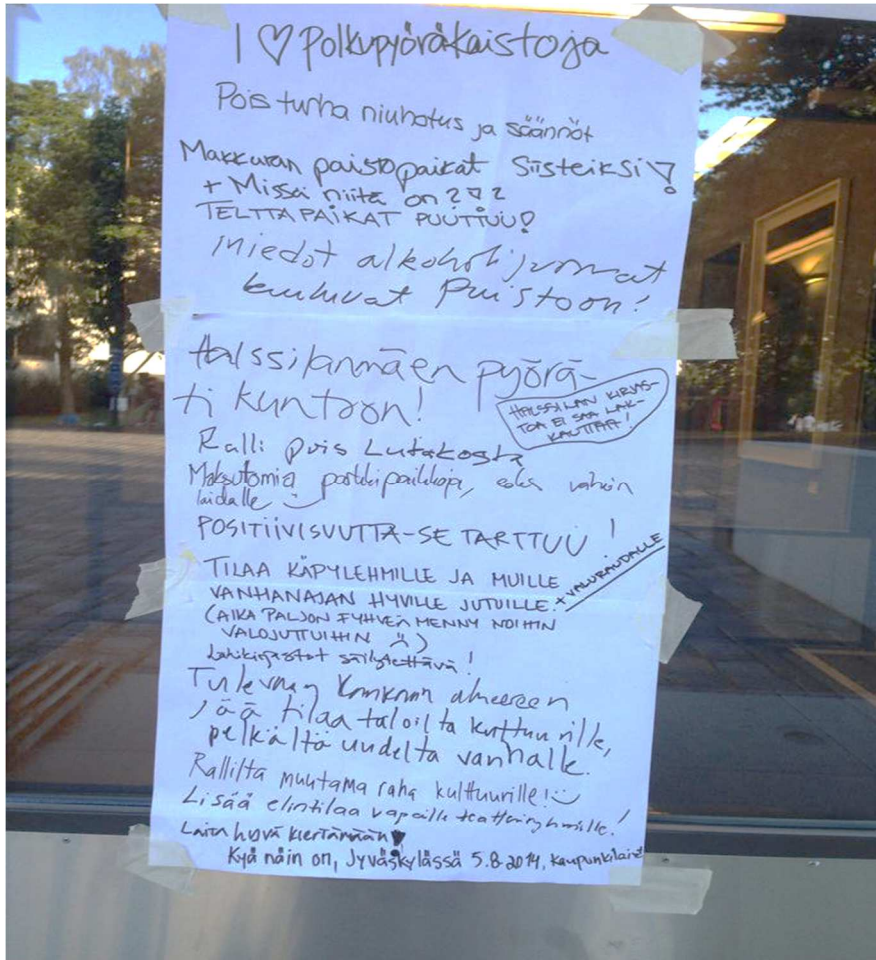 I ♡ Polkupyöräkaistoja
Pois turha niuhotus ja säännöt
Makkaran paistopaikat siisteiksi!
+ Missä niitä on?!?
TELTTAPAIKAT PUUTTUU!
miedot alkoholijuomat
kuuluvat Puistoon!
Halssilanmäen pyörä-
ti kuntoon!
HALSSILAN KIRJAS-
TOA EI SAA LAK-
KAUTTAA!
Ralli pois Lutakosta
Maksutomia parkkipaikkoja, edes vähän
laidalle :)
POSITIIVISUUTTA-SE TARTTUU!
TILAA KÄPYLEHMILLE JA MUILLE
VANHANAJAN HYVILLE JUTUILLE + VALURAUDALLE
(AIKA PALJON FYHVEä MENNY NOIHIN
VALOJUTTUIHIN :()
Lähikirjastot säilytettävä!
Tulevan Kankaan alueeseen
jää tilaa taloilta kulttuurille,
pelkältä uudelta vanhalle.
Rallilta muutama raha kulttuurille! :)
Lisää elintilaa vapaille teatteriryhmille!
Laita hyvä kiertämään ♥
Kyä näin on, Jyväskylässä 5.8.2014, kaupunkilaiset